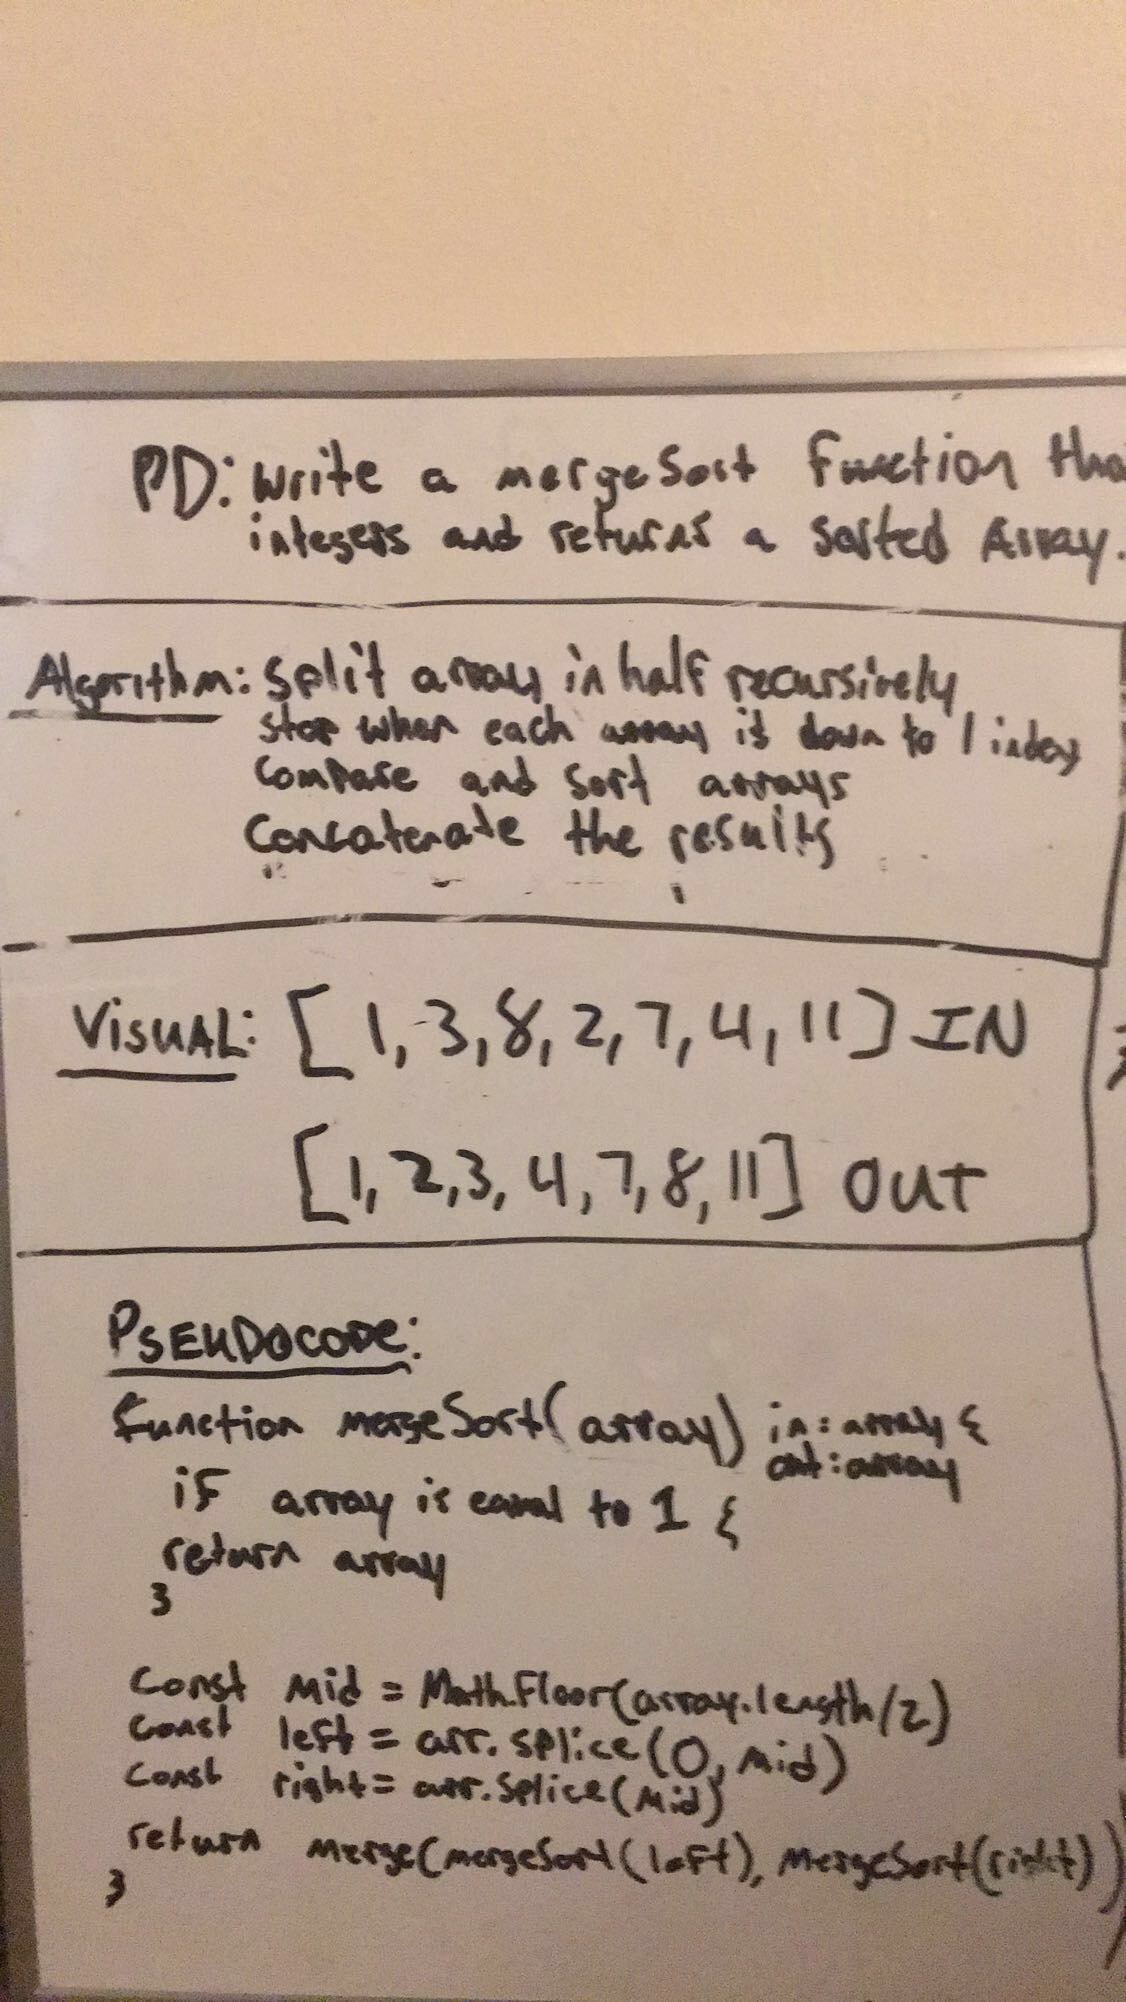 PD: Write a mergeSort function tha
integers and returns a sorted Array.
Algorithm: Split array in half recursively
stop when each array is down to 1 index
compare and sort arrays
Concatenate the results
VISUAL: [1, 3, 8, 2, 7, 4, 11] IN
[1, 2, 3, 4, 7, 8, 11] OUT
PSEUDOCODE:
function mergeSort(array) in: array {
out: array
if array is equal to 1 {
return array
}
const mid = Math.Floor(array.length/2)
const left = arr.splice(0, mid)
const right = arr.splice(mid)
return merge(mergeSort(left), MergeSort(right))
}